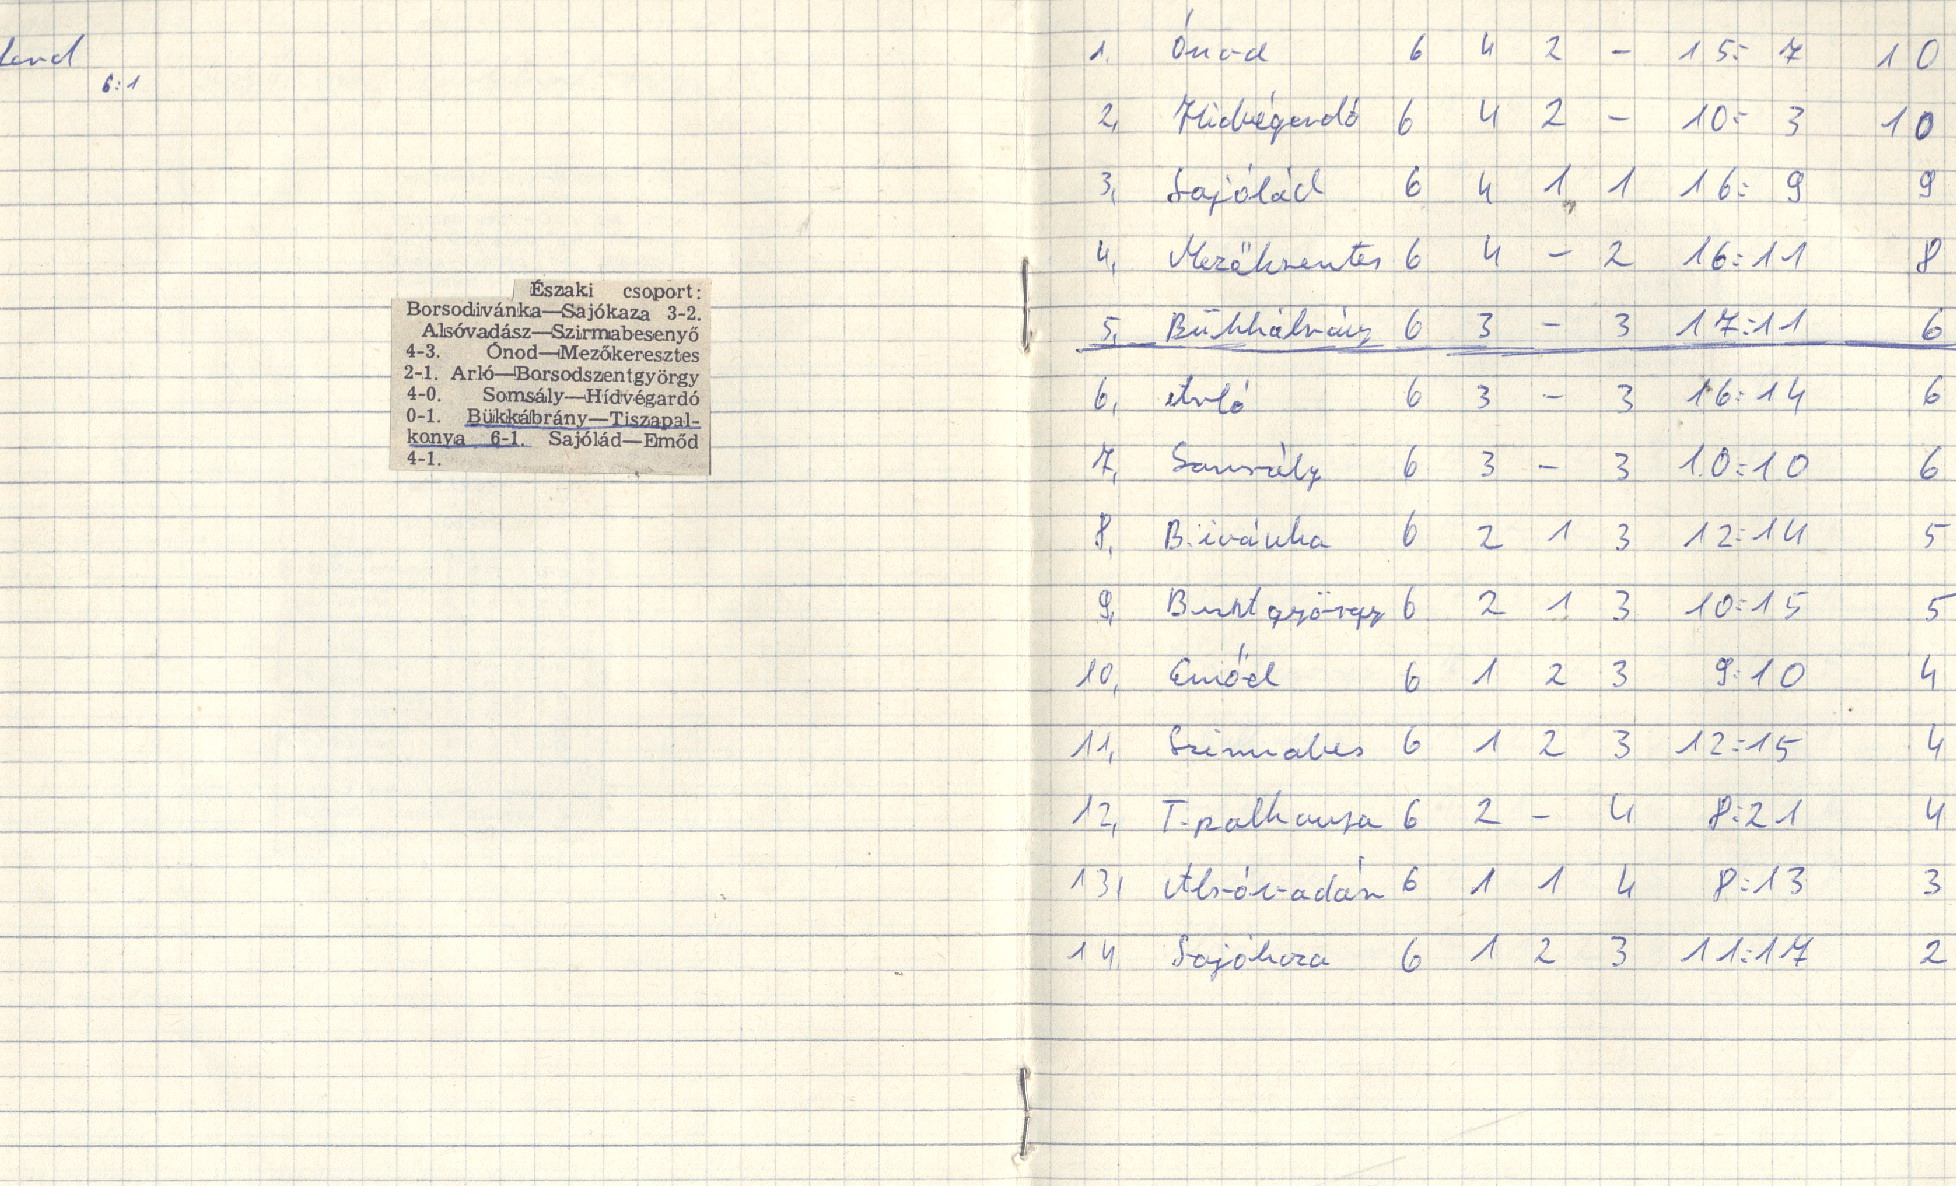 6:1
Északi csoport:
Borsodivánka—Sajókaza 3-2.
Alsóvadász—Szirmabesenyő
4-3. Ónod—Mezőkeresztes
2-1. Arló—Borsodszentgyörgy
4-0. Somsály—Hídvégardó
0-1. Bükkábrány—Tiszapal-
konya 6-1. Sajólád—Emőd
4-1.
1. Ónod 6 4 2 - 15: 7 10
2, Hidvégardó 6 4 2 - 10: 3 10
3, Sajólád 6 4 1 1 16: 9 9
4, Mezőkeresztes 6 4 - 2 16:11 8
5, Bükkábrány 6 3 - 3 17:11 6
6, Arló 6 3 - 3 16:14 6
7, Somsály 6 3 - 3 10:10 6
8, B.ivánka 6 2 1 3 12:14 5
9, 6 2 1 3 10:15 5
10, Emőd 6 1 2 3 9:10 4
11, Szirmabes 6 1 2 3 12:15 4
12, T-palkonya 6 2 - 4 8:21 4
13, Alsóvadász 6 1 1 4 8:13 3
14 Sajókaza 6 1 2 3 11:17 2